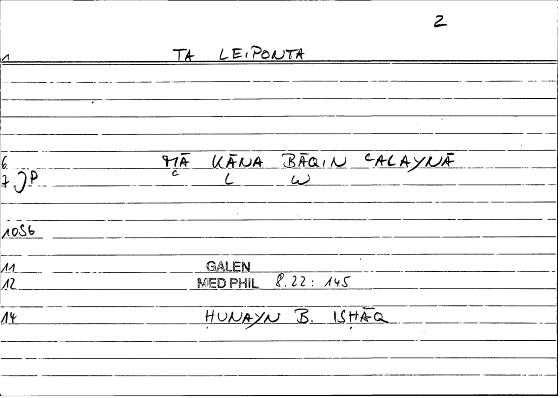 2
1 TA LEIPONTA
6 MĀ KĀNA BĀQIN ʿALAYNĀ
7 JP C L W
1056
11 GALEN
12 MED PHIL 8.22: 145
14 ḤUNAYN B. ISḤĀQ